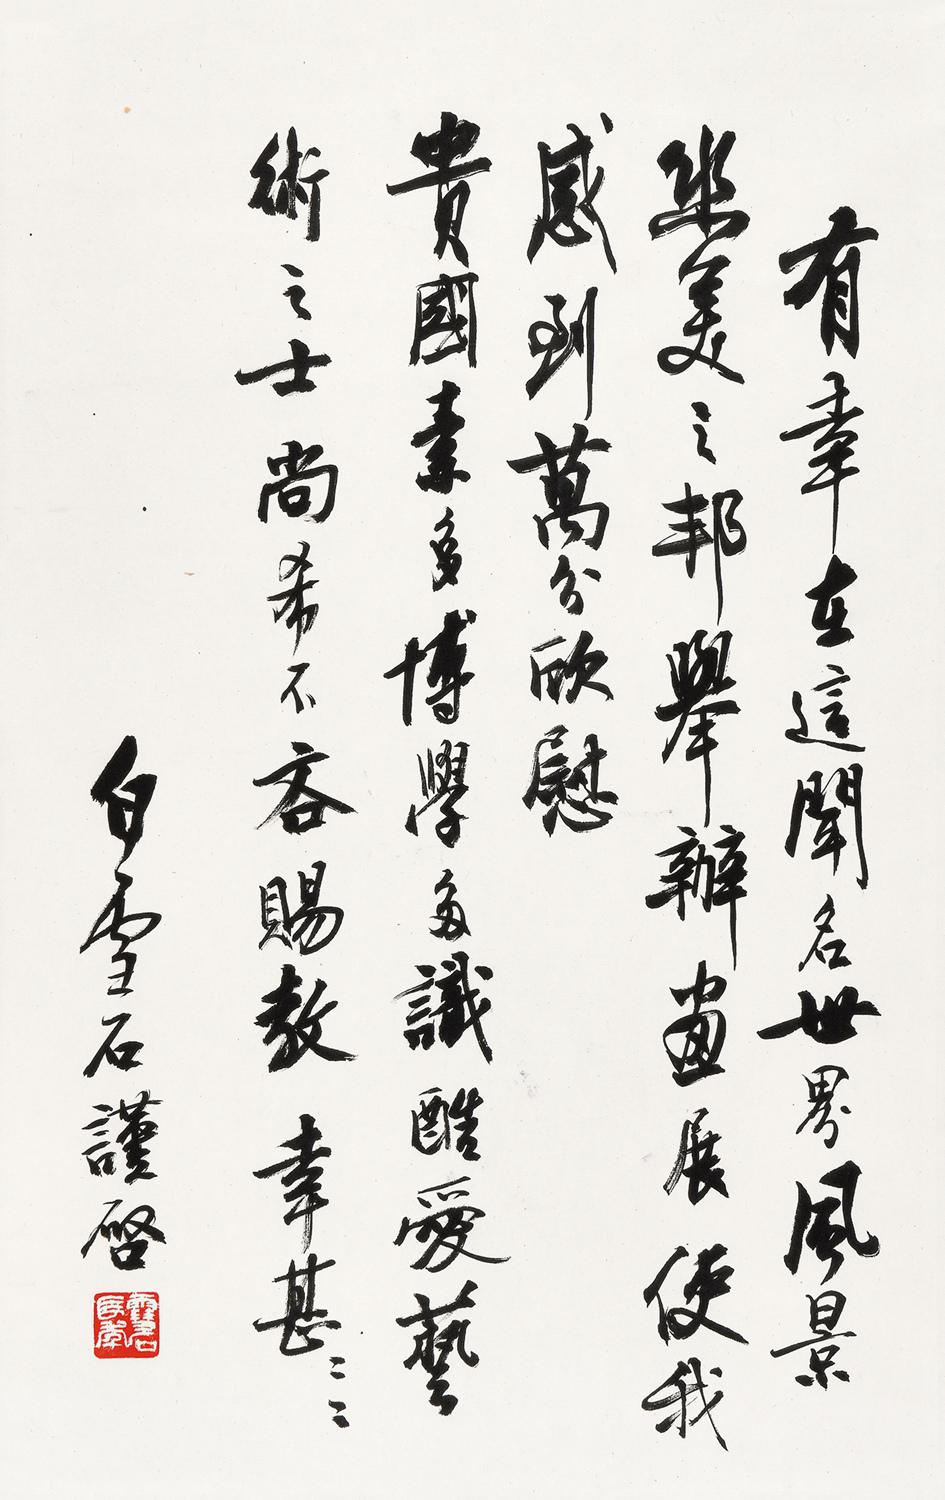 有幸在這聞名世界風景
幽美之邦舉辦畫展使我
感到萬分欣慰
貴國素多博學多識酷愛藝
術之士尚希不吝賜教幸甚〻〻
白雪石謹啓